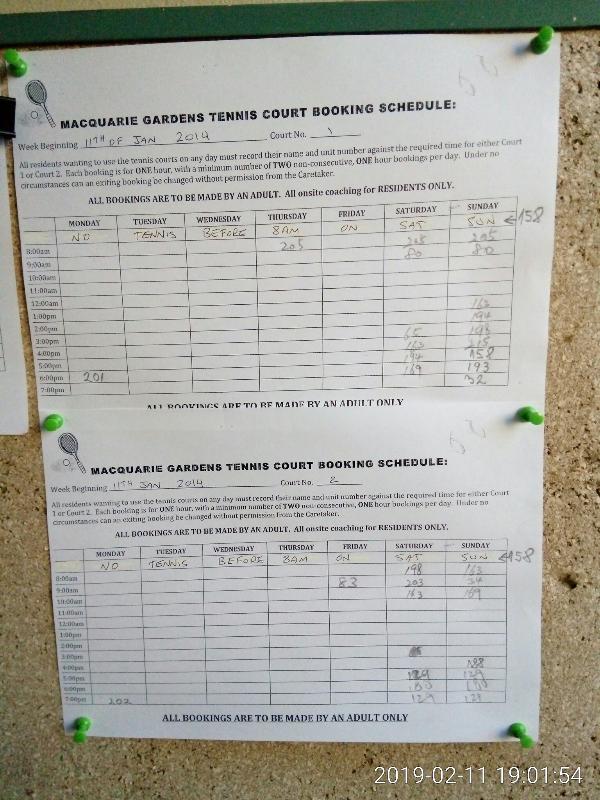 MACQUARIE GARDENS TENNIS COURT BOOKING SCHEDULE:
Week Beginning 11TH OF JAN 2019 Court No. 1
All residents wanting to use the tennis courts on any day must record their name and unit number against the required time for either Court
1 or Court 2. Each booking is for ONE hour, with a minimum number of TWO non-consecutive, ONE hour bookings per day. Under no
circumstances can an exiting booking be changed without permission from the Caretaker.
ALL BOOKINGS ARE TO BE MADE BY AN ADULT. All onsite coaching for RESIDENTS ONLY.
MONDAY TUESDAY WEDNESDAY THURSDAY FRIDAY SATURDAY SUNDAY
NO TENNIS BEFORE 8AM ON SAT SUN ←158
8:00am 205 205
9:00am 80 80
10:00am
11:00am
12:00am 163
1:00pm 194
2:00pm 65 193
3:00pm 163 215
4:00pm 194 158
5:00pm 169 193
6:00pm 201 32
7:00pm
ALL BOOKINGS ARE TO BE MADE BY AN ADULT ONLY
MACQUARIE GARDENS TENNIS COURT BOOKING SCHEDULE:
Week Beginning 11TH JAN 2019 Court No. 2
All residents wanting to use the tennis courts on any day must record their name and unit number against the required time for either Court
1 or Court 2. Each booking is for ONE hour, with a minimum number of TWO non-consecutive, ONE hour bookings per day. Under no
circumstances can an exiting booking be changed without permission from the Caretaker.
ALL BOOKINGS ARE TO BE MADE BY AN ADULT. All onsite coaching for RESIDENTS ONLY.
MONDAY TUESDAY WEDNESDAY THURSDAY FRIDAY SATURDAY SUNDAY
NO TENNIS BEFORE 8AM ON SAT SUN ←158
8:00am 198 163
9:00am 83 203 34
10:00am 163 169
11:00am
12:00am
1:00pm
2:00pm
3:00pm
4:00pm 188
5:00pm 129 129
6:00pm 180 180
7:00pm 202 129 129
ALL BOOKINGS ARE TO BE MADE BY AN ADULT ONLY
2019-02-11 19:01:54